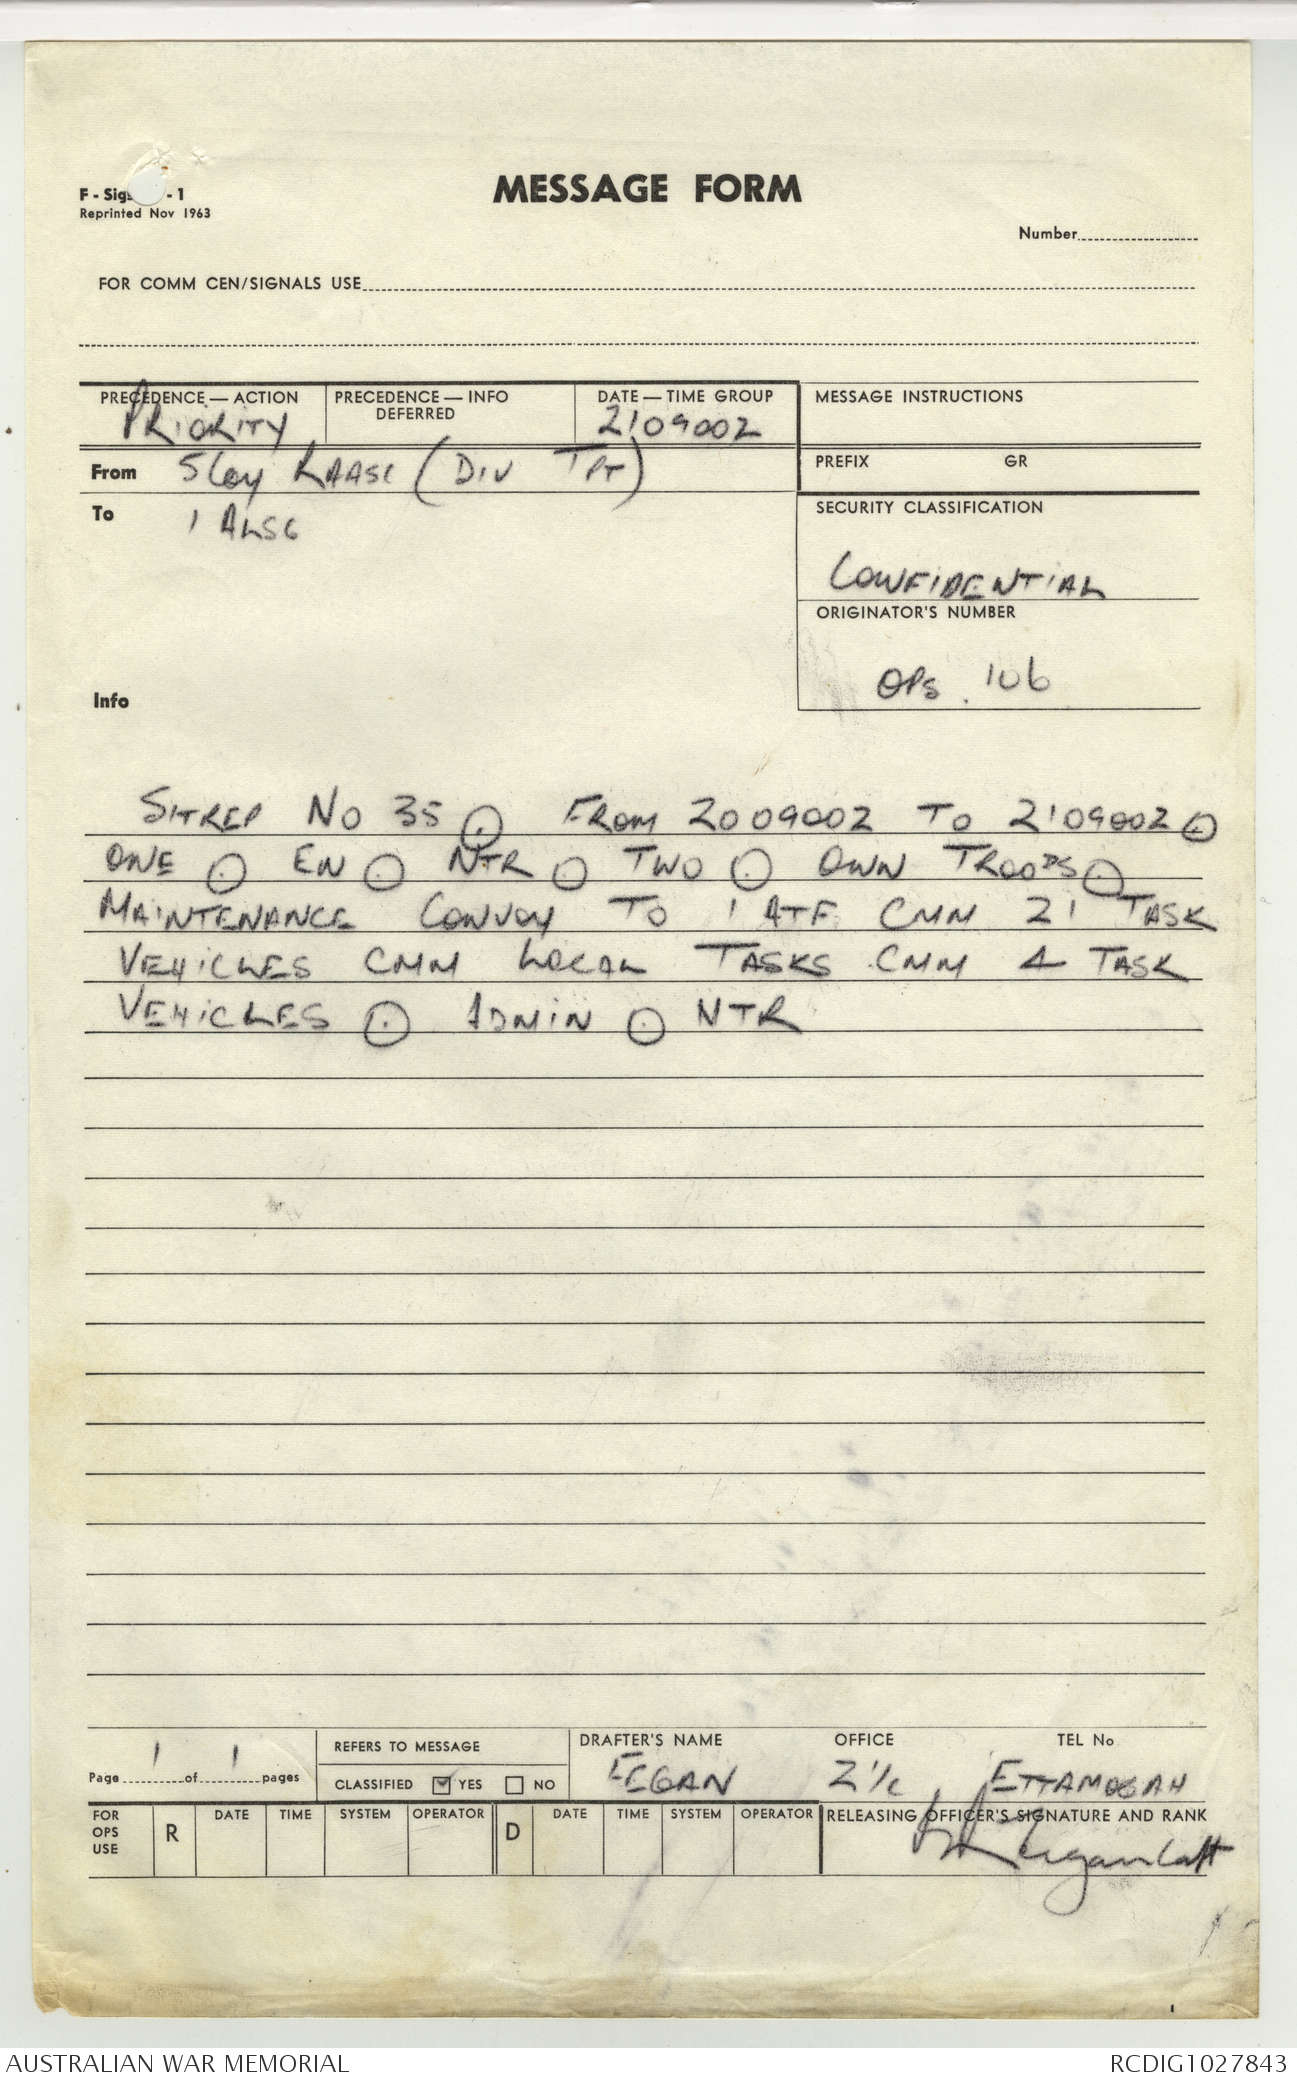 F - Sigs - 1
Reprinted Nov 1963
MESSAGE FORM
Number
FOR COMM CEN/SIGNALS USE
PRECEDENCE — ACTION
PRIORITY
PRECEDENCE — INFO
DEFERRED
DATE — TIME GROUP
210900Z
MESSAGE INSTRUCTIONS
From 5 Coy RAASC (DIV TPT)
PREFIX GR
To 1 ALSG
SECURITY CLASSIFICATION
CONFIDENTIAL
ORIGINATOR'S NUMBER
OPS. 106
Info
SITREP NO 35 . FROM 200900Z TO 210900Z .
ONE . EN . NTR . TWO . OWN TROOPS .
MAINTENANCE CONVOY TO 1 ATF CMM 21 TASK
VEHICLES CMM LOCAL TASKS CMM 4 TASK
VEHICLES . ADMIN . NTR
Page 1 of 1 pages
REFERS TO MESSAGE
CLASSIFIED YES NO
DRAFTER'S NAME
EGAN
OFFICE
2I/C
TEL No
ETTAMOGAH
FOR OPS USE
R DATE TIME SYSTEM OPERATOR D DATE TIME SYSTEM OPERATOR
RELEASING OFFICER'S SIGNATURE AND RANK
AUSTRALIAN WAR MEMORIAL
RCDIG1027843